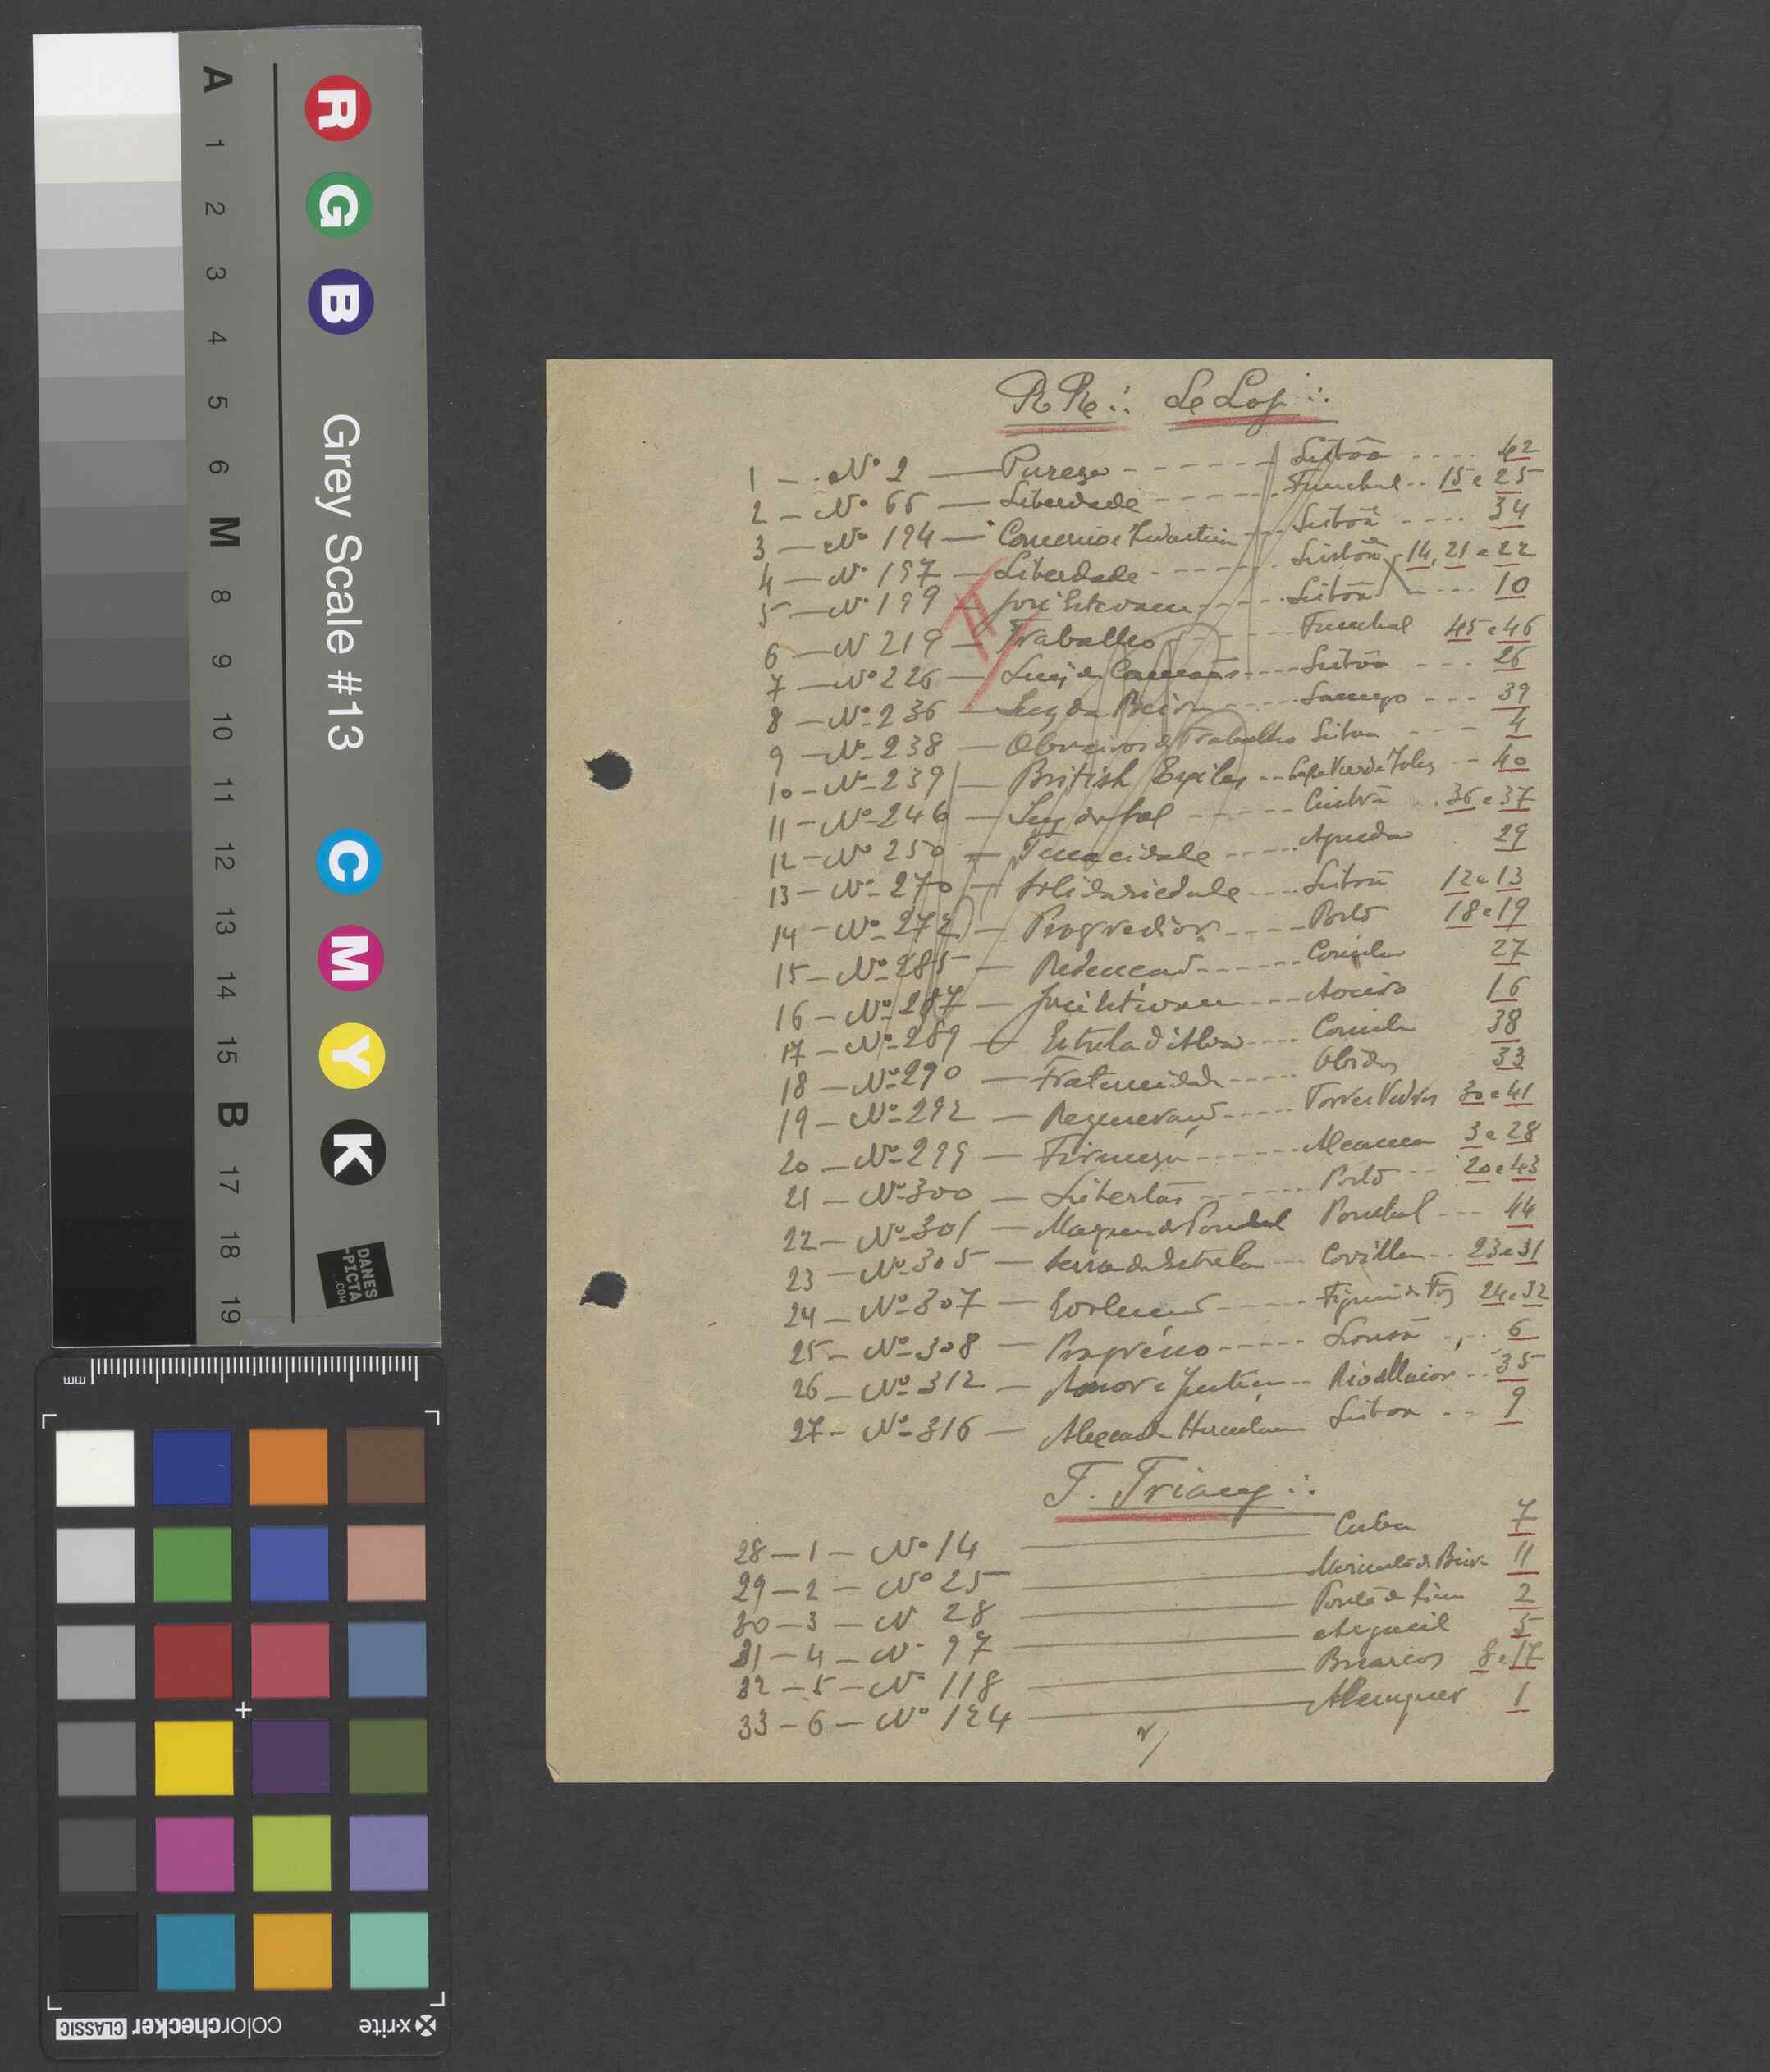 RRe∴ LeLoj∴
1 - Nº 2 — Pureza - - - - - Lisbôa - - - - 42
2 - Nº 66 — Liberdade - - - - - Funchal - - 15 e 25
3 — Nº 194 — Comercio e Industria - - - Lisbôa - - - - 34
4 — Nº 197 — Liberdade - - - - - Lisbôa - 14, 21 e 22
5 — Nº 199 — José Estevam - - - - Lisbôa - - - - 10
6 — N 219 — Trabalho - - - - - Funchal 45 e 46
7 — Nº 226 — Luiz de Camões - - - - Lisbôa - - - 26
8 — Nº 236 — Luz da Beira - - - - Lamego - - - 39
9 — Nº 238 — Obreiros do Trabalho Lisboa - - - - 4
10 - Nº 239 — British Exiles - - 40
11 - Nº 246 — Luz do Sol - - - - - Cintra - - 36 e 37
12 - Nº 250 — Tenacidade - - - - Agueda 29
13 - Nº 270 — Solidariedade - - - - Lisboa 12 e 13
14 - Nº 272 — Progredior - - - - - Porto 18 e 19
15 - Nº 285 — Redencao - - - - - - 27
16 - Nº 287 — José Estevam - - - Aveiro 16
17 - Nº 289 — Estrela d'Alva - - - - 38
18 - Nº 290 — Fraternidade - - - - - Obidos 33
19 - Nº 292 — Regeneração - - - - - Torres Vedras 30 e 41
20 - Nº 299 — Firmeza - - - - - - 3 e 28
21 - Nº 300 — Libertas - - - - - - Porto - - - 20 e 43
22 - Nº 301 — Marquez de Pombal Pombal - - - 44
23 - Nº 305 — Serra da Estrela - - Covilhã - - 23 e 31
24 - Nº 307 — Evolucao - - - - - Figueira da Foz 24 e 32
25 - Nº 308 — Progresso - - - - - Lousã - - - 6
26 - Nº 312 — Amor e Justiça - - Rio Maior - - 35
27 - Nº 316 — Alexandre Herculano Lisboa - - 9
T. Triang∴
28 — 1 — Nº 14 — Cuba 7
29 — 2 — Nº 25 — da Beira 11
30 — 3 — N 28 — Ponte de 2
31 — 4 — Nº 97 — Arganil 5
32 — 5 — Nº 118 — Buarcos 8 e 17
33 — 6 — Nº 124 — Alemquer 1
A 1 2 3 4 5 6 M 8 9 10 11 12 13 14 15 B 17 18 19
R G B Grey Scale #13 C M Y K
DANES
-PICTA
.COM
mm
x-rite colorchecker CLASSIC